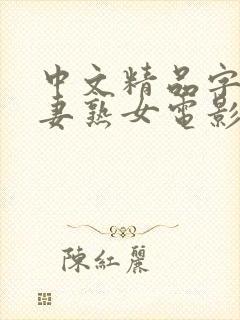 中文精品字
妻熟女電影
陳紅麗